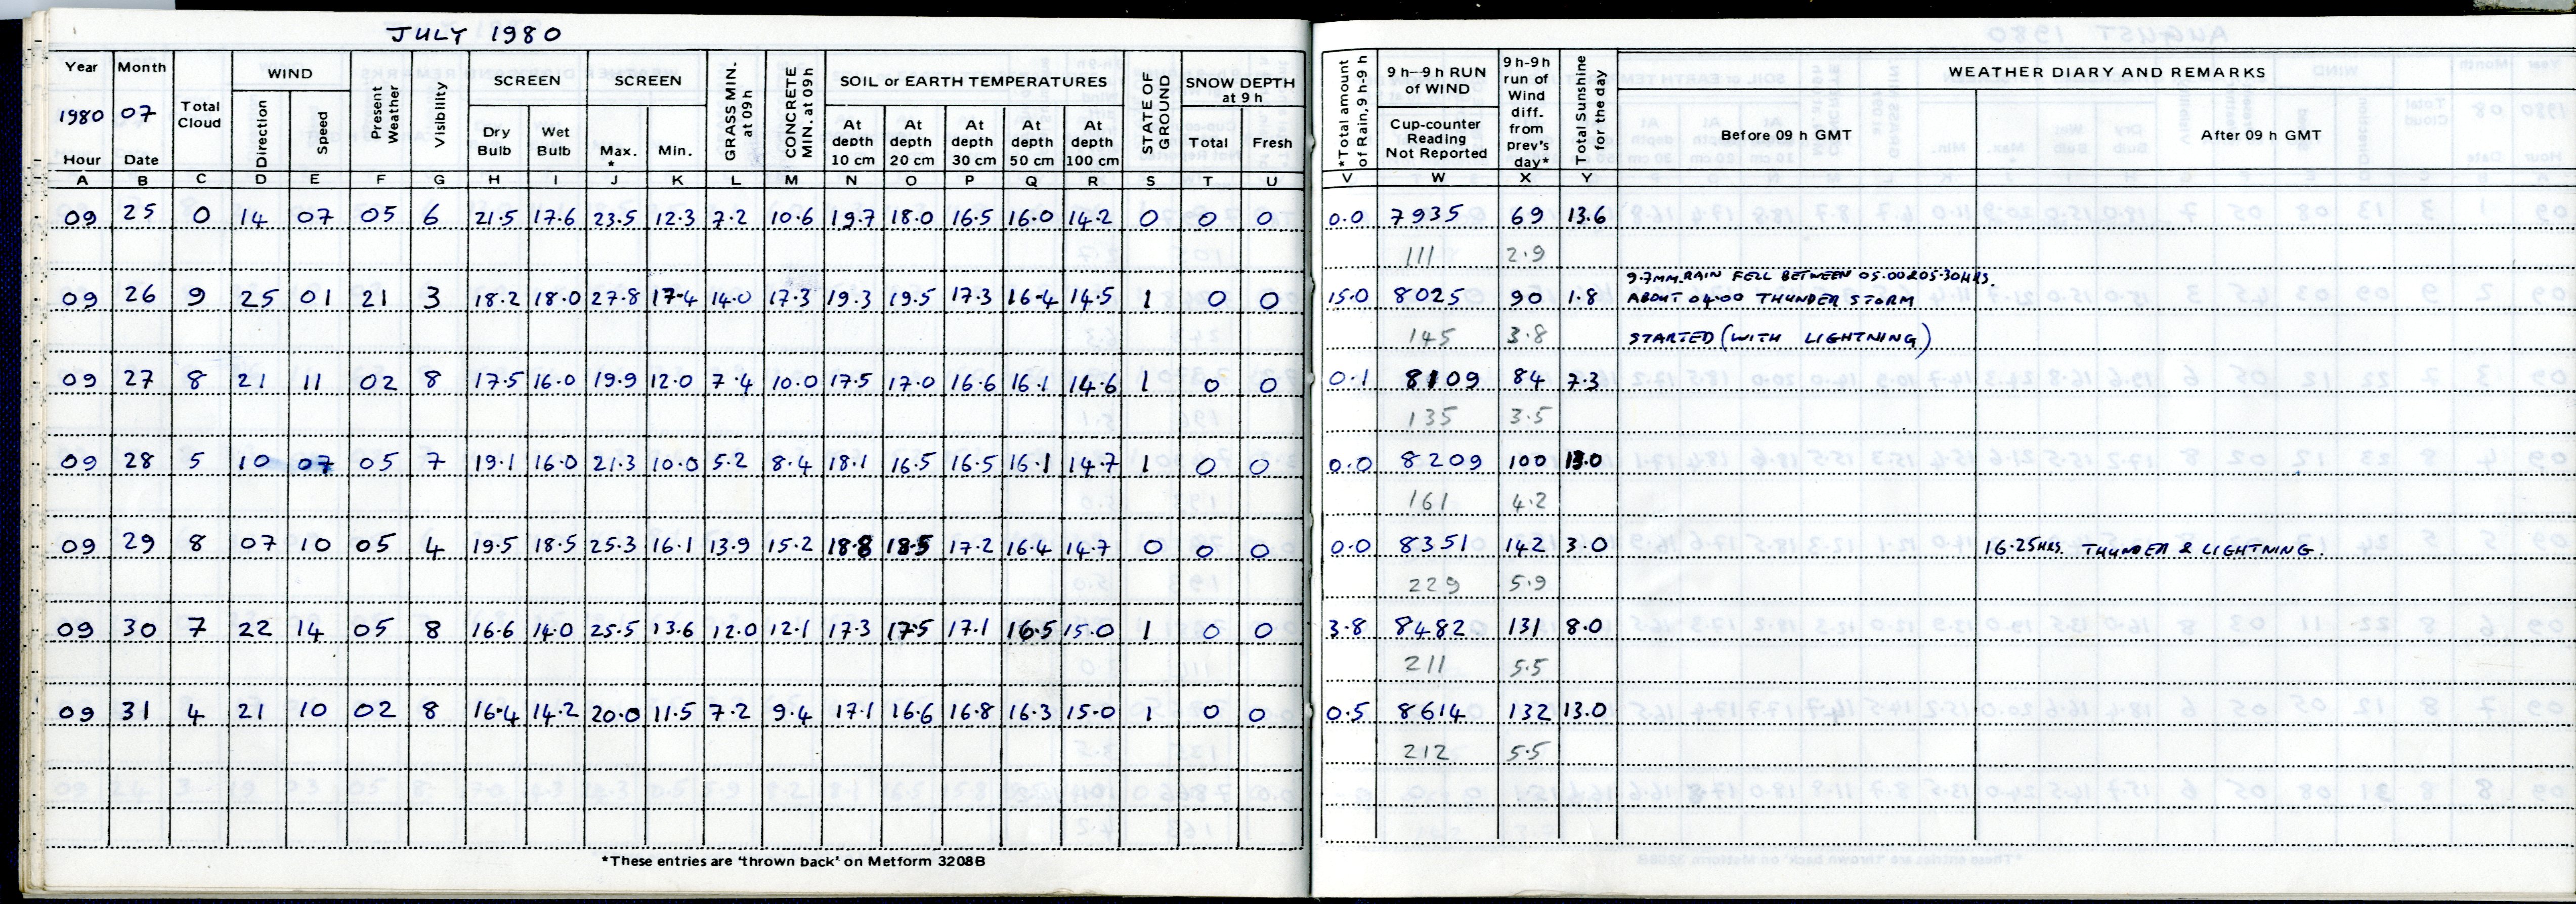 JULY 1980
Year Month
1980 07
Hour Date
Total Cloud
WIND
Direction Speed
Present Weather
Visibility
SCREEN SCREEN
Dry Bulb Wet Bulb Max. * Min.
GRASS MIN. at 09h
CONCRETE MIN. at 09h
SOIL or EARTH TEMPERATURES
At depth 10 cm At depth 20 cm At depth 30 cm At depth 50 cm At depth 100 cm
STATE OF GROUND
SNOW DEPTH at 9 h
Total Fresh
*Total amount of Rain, 9h-9 h
9 h–9 h RUN of WIND
Cup-counter Reading Not Reported
9 h-9h run of Wind diff. from prev's day*
Total Sunshine for the day
WEATHER DIARY AND REMARKS
Before 09 h GMT After 09 h GMT
A B C D E F G H I J K L M N O P Q R S T U V W X Y
09 25 0 14 07 05 6 21.5 17.6 23.5 12.3 7.2 10.6 19.7 18.0 16.5 16.0 14.2 0 0 0 0.0 7935 69 13.6
111 2.9
9.7MM RAIN FELL BETWEEN 05.00&05.30HRS.
09 26 9 25 01 21 3 18.2 18.0 27.8 17.4 14.0 17.3 19.3 19.5 17.3 16.4 14.5 1 0 0 15.0 8025 90 1.8 ABOUT 04.00 THUNDER STORM
145 3.8 STARTED (WITH LIGHTNING)
09 27 8 21 11 02 8 17.5 16.0 19.9 12.0 7.4 10.0 17.5 17.0 16.6 16.1 14.6 1 0 0 0.1 8109 84 7.3
135 3.5
09 28 5 10 07 05 7 19.1 16.0 21.3 10.0 5.2 8.4 18.1 16.5 16.5 16.1 14.7 1 0 0 0.0 8209 100 13.0
161 4.2
09 29 8 07 10 05 4 19.5 18.5 25.3 16.1 13.9 15.2 18.8 18.5 17.2 16.4 14.7 0 0 0 0.0 8351 142 3.0 16.25HRS. THUNDER & LIGHTNING.
229 5.9
09 30 7 22 14 05 8 16.6 14.0 25.5 13.6 12.0 12.1 17.3 17.5 17.1 16.5 15.0 1 0 0 3.8 8482 131 8.0
211 5.5
09 31 4 21 10 02 8 16.4 14.2 20.0 11.5 7.2 9.4 17.1 16.6 16.8 16.3 15.0 1 0 0 0.5 8614 132 13.0
212 5.5
*These entries are 'thrown back' on Metform 3208B